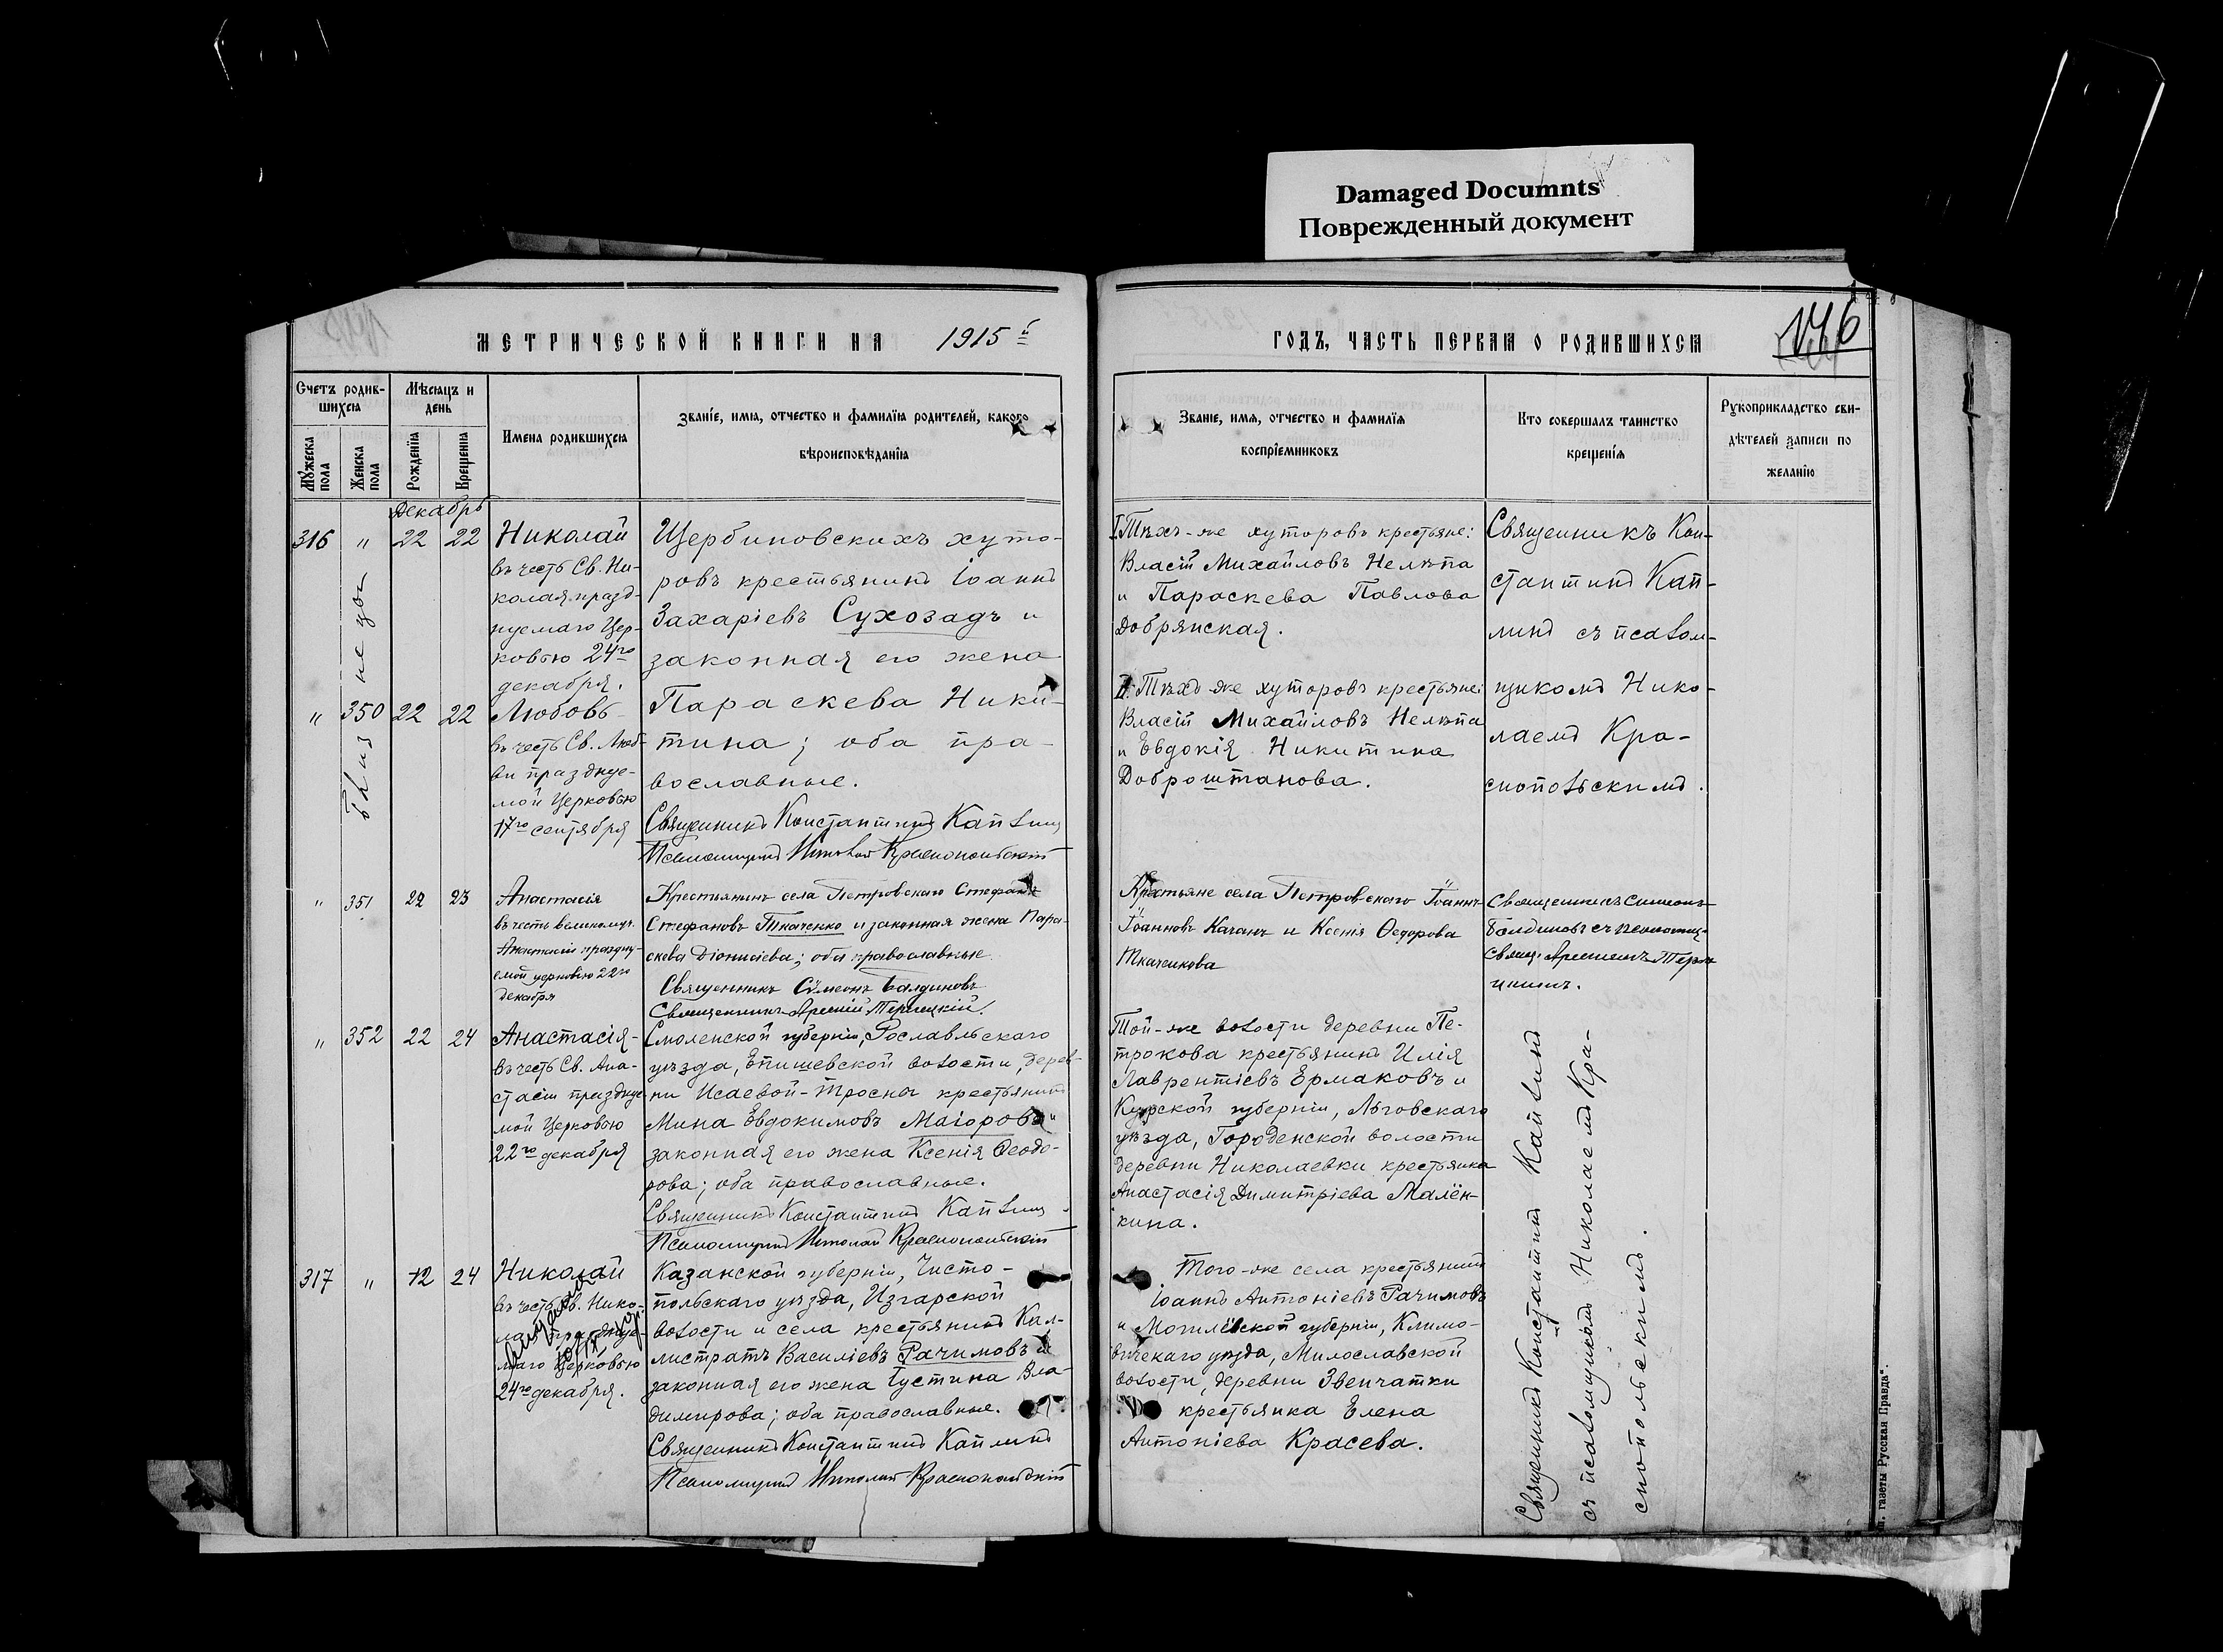 Damaged Documnts
Поврежденный документ
МЕТРИЧЕСКОЙ КНИГИ НА 1915 й
ГОДЪ, ЧАСТЬ ПЕРВАЯ О РОДИВШИХСЯ
146
Счетъ родив-
шихся
Мужеска пола
Женска пола
Мѣсяцъ и
день
Рожденїя
Крещенїя
Имена родившихся
Званїе, имя, отчество и фамилїя родителей, какого
вѣроисповѣданїя
Званїе, имя, отчество и фамилїя
воспрїемниковъ
Кто совершалъ таинство
крещенїя
Рукоприкладство сви-
дѣтелей записи по
желанїю
Декабрь
316 " 22 22
Николай
въ честь Св. Ни-
колая празд-
нуемаго Цер-
ковью 24го
декабря.
близнецы
" 350 22 22
Любовь
въ честь Св. Люб-
ви праздкуе-
мой Церковью
17го сентября
Щербиновскихъ хуто-
ровъ крестьянинъ Іоаннъ
Захаріевъ Сухозадъ и
законная его жена
Параскева Ники-
тина; оба пра-
вославные.
Священникъ Константинъ Каплинъ
Псаломщикъ Николай Краснопольскій
I. Тѣхъ-же хуторовъ крестьяне:
Власій Михайловъ Нелѣпа
и Параскева Павлова
Добрянская.
II. Тѣхъ же хуторовъ крестьяне:
Власій Михайловъ Нелѣпа
и Евдокія Никитина
Доброштанова.
Священникъ Кон-
стантинъ Кап-
линъ съ псалом-
щикомъ Нико-
лаемъ Кра-
снопольскимъ.
" 351 22 23
Анастасія
въ честь великомуч.
Анастасіи праздну-
емой церковью 22го
декабря
Крестьянинъ села Петровскаго Стефанъ
Стефановъ Ткаченко и законная жена Пара-
скева Діонисіева; оба православные.
Священникъ Сѵмеонъ Балдиновъ
Священникъ Арсеній
Крестьяне села Петровскаго Іоаннъ
Іоанновъ Качанъ и Ксенія Ѳедорова
Ткаченкова
Священникъ Симеонъ
Балдиновъ съ псаломщ.
свящ. Арсеніемъ
" 352 22 24
Анастасія-
въ честь Св. Ана-
стасіи праздкуе-
мой Церковью
22го декабря
Смоленской губерніи, Рославльскаго
уѣзда, Епишевской волости, дерев-
ни Исаевой-Тросны крестьянинъ
Мина Евдокимовъ Маіоровъ и
законная его жена Ксенія Ѳеодо-
рова; оба православные.
Священникъ Константинъ Каплинъ
Псаломщикъ Николай Краснопольскій
Той-же волости деревни Пе-
трокова крестьянинъ Илія
Лаврентіевъ Ермаковъ и
Курской губерніи, Льговскаго
уѣзда, Городенской волости
деревни Николаевки крестьянка
Анастасія Димитріева Малён-
кина.
317 " 12 24
Николай
въ честь Св. Нико-
лая праздкуе-
маго Церковью
24го декабря.
Казанской губерніи, Чисто-
польскаго уѣзда, Изгарской
волости и села крестьянинъ Кал-
листратъ Василіевъ Рачимовъ и
законная его жена Іустина Вла-
димирова; оба православные.
Священникъ Константинъ Каплинъ
Псаломщикъ Николай Краснопольскій
Того-же села крестьянинъ
Іоаннъ Антоніевъ Рачимовъ
и Могилёвской губерніи, Климо-
вичскаго уѣзда, Милославской
волости, деревни Звенчатки
крестьянка Елена
Антоніева Красева.
Священникъ Константинъ Каплинъ
съ псаломщикомъ Николаемъ Кра-
снопольскимъ.
газеты Русская Правда".